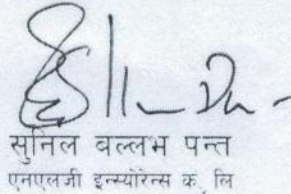 सुनिल वल्लभ पन्त
एनएलजी इन्स्योरेन्स क. लि